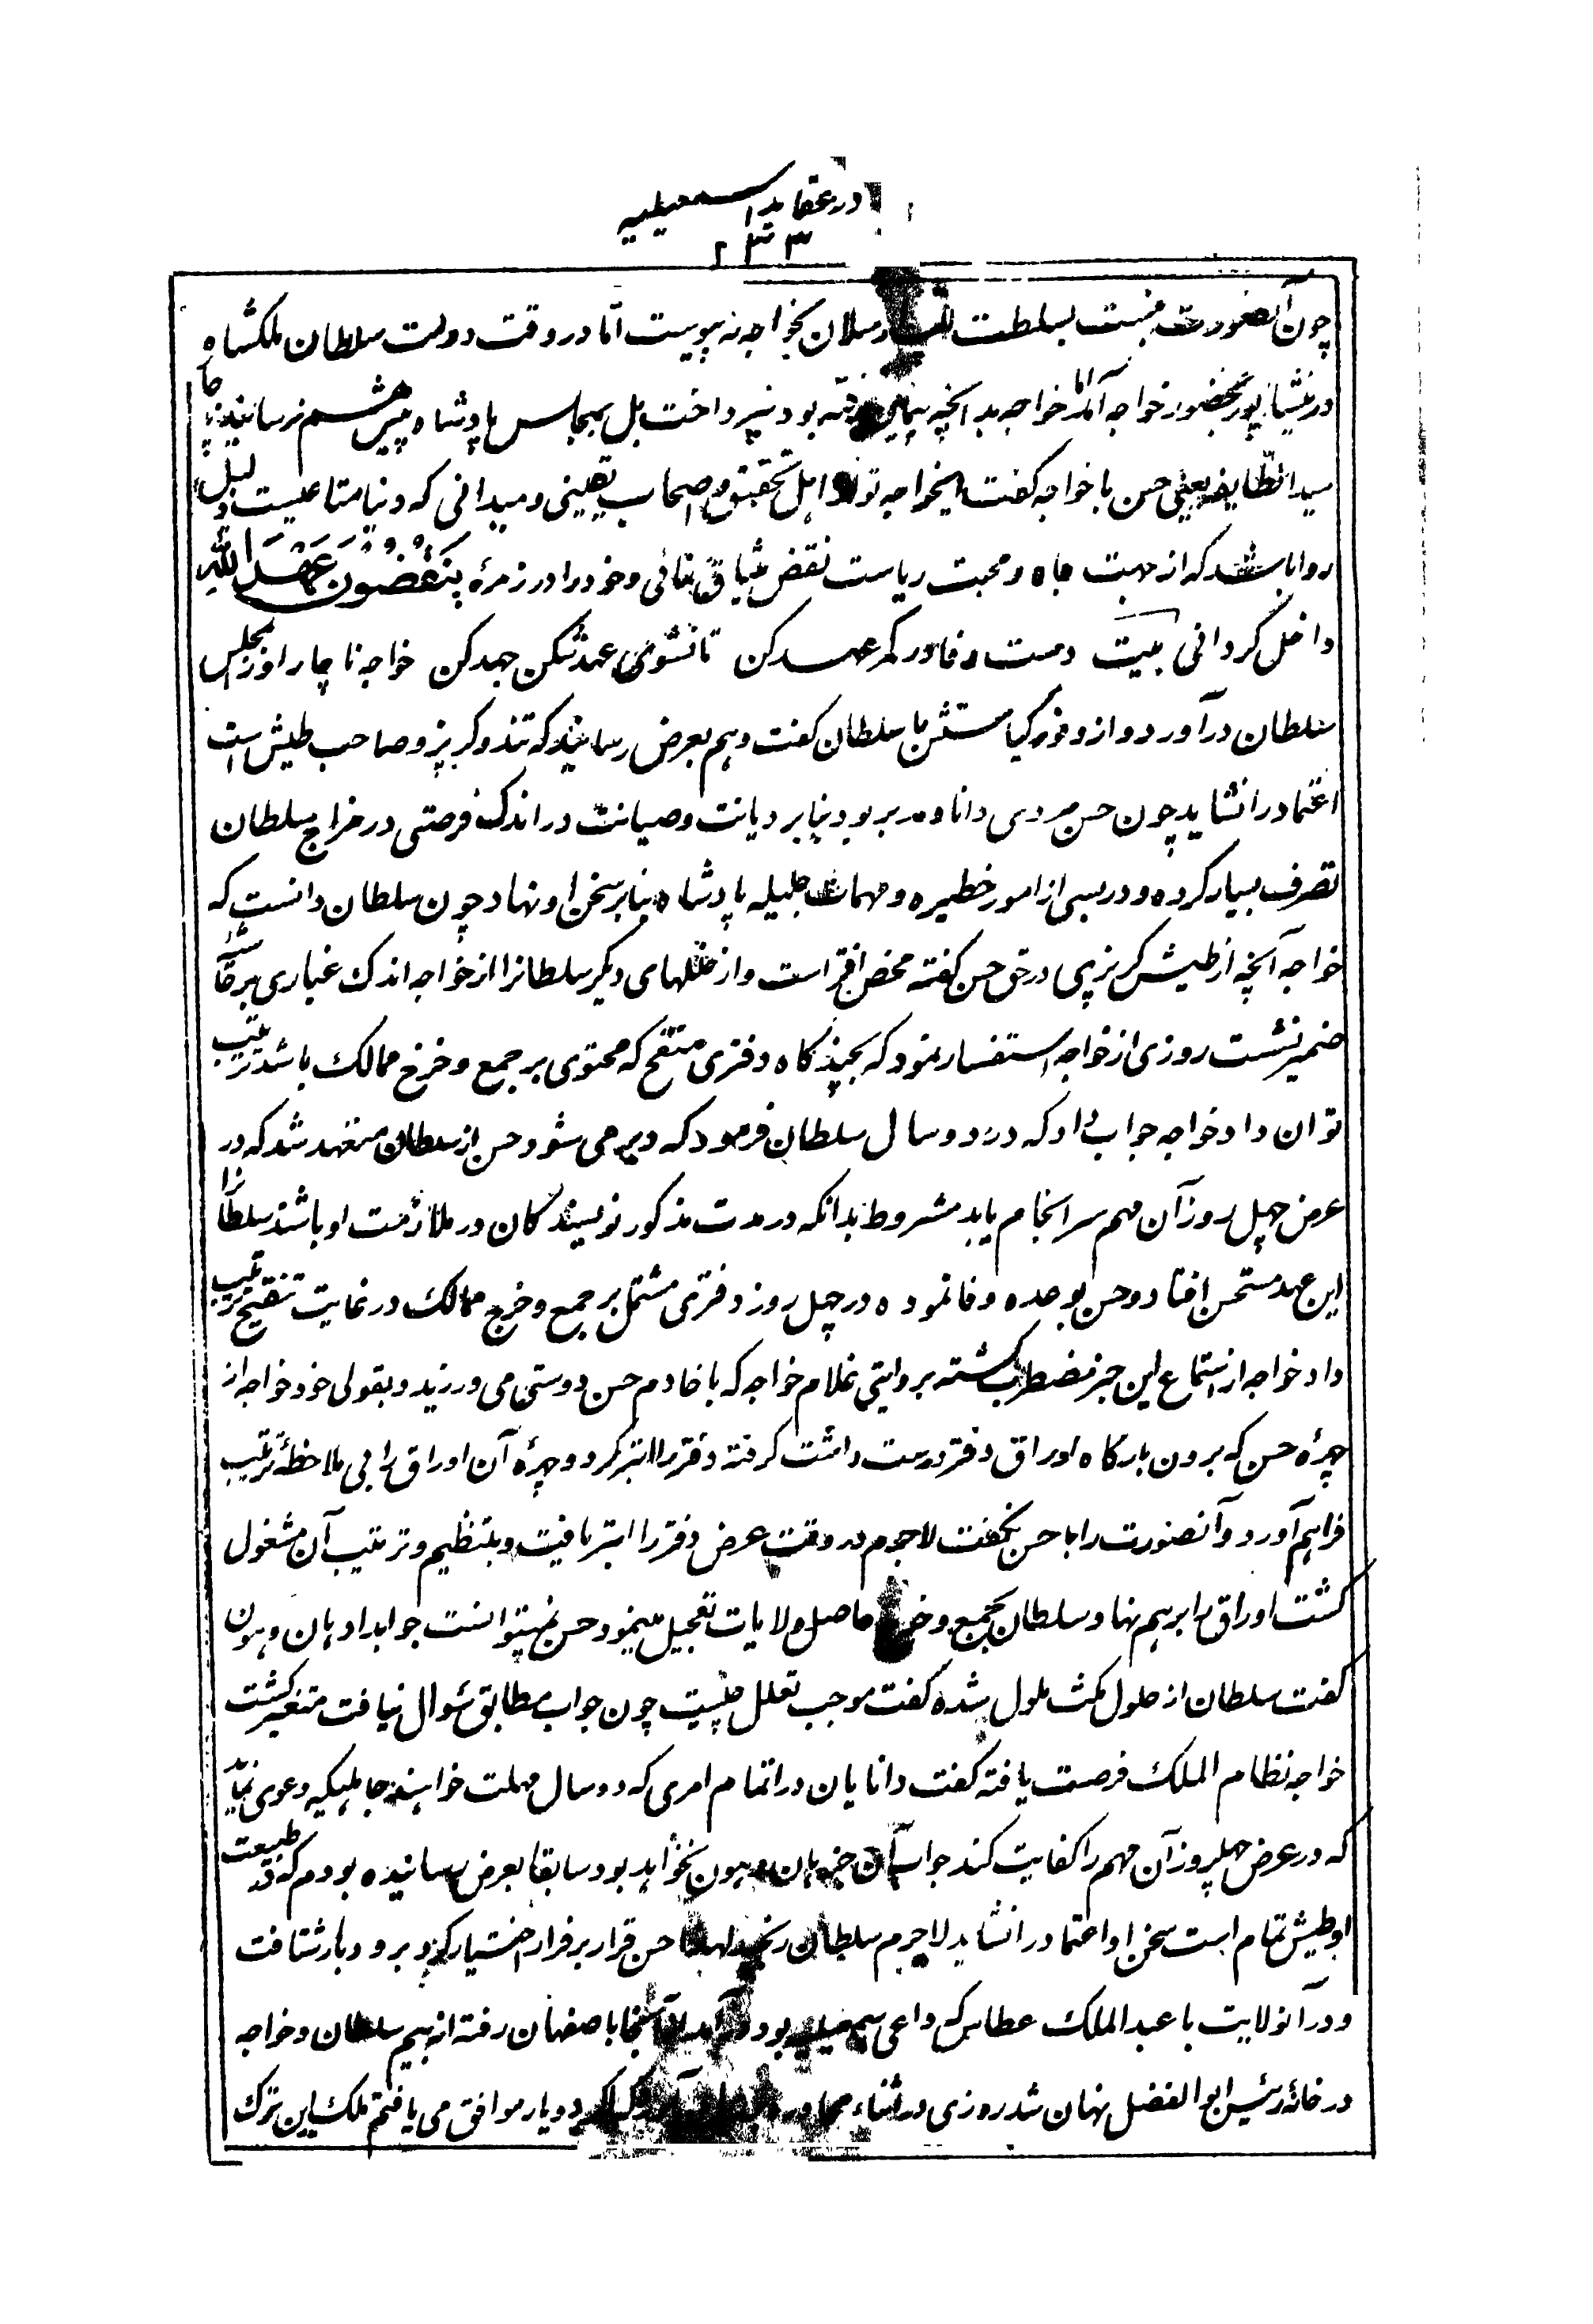 در عقاید اسمعیلیه
۲۳۳
چون آنصورت نسبت بسلطنت الب ارسلان بخواجه نه پیوست اما در وقت دولت سلطان ملکشاه
در نیشابور بحضور خواجه آمد اما خواجه بد انچه پیمان رفته بود نپرداخت بل بمجلس پادشاه پیشش هم نرسانید
سید الطایفه یعنی حسن با خواجه گفت ایخواجه تو از اهل تحقیق و اصحاب یقینی و میدانی که دنیا متاعیست قلیل
روا باشد که از جهت جاه و محبت ریاست نقض میثاق نمائی و خود را در زمره یَنْقُضُونَ عَهْدَ اللّٰهِ
داخل گردانی بیت دست وفا در کمر عهد کن تا نشوی عهد شکن جهد کن خواجه ناچار او را بمجلس
سلطان درآورد و از وفور کیاستش با سلطان گفت و هم بعرض رسانید که تند و گربز و صاحب طیش است
اعتماد را نشاید چون حسن مردی دانا و مدبر بود بنا بر دیانت و صیانت در اندک فرصتی در مزاج سلطان
تصرف بسیار کرده و در بسی از امور خطیره و مهمات جلیله پادشاه بنا بر سخن او نهاد چون سلطان دانست که
خواجه آنچه از طیش گربزی در حق حسن گفته محض افتراست و از خللهای دیگر سلطانرا از خواجه اندک غباری بر مرآت
ضمیر نشست روزی از خواجه استفسار نمود که بچند گاه دفتری منقح که محتوی بر جمع و خرج ممالک باشد ترتیب
توان داد خواجه جواب داد که در دو سال سلطان فرمود که دیر می شود حسن از سلطان متعهد شد که در
عرض چهل روز آن مهم سرانجام یابد مشروط بدانکه در مدت مذکور نویسندگان در ملازمت او باشند سلطانرا
این عهد مستحسن افتاد و حسن بوعده وفا نموده در چهل روز دفتری مشتمل بر جمع و خرج ممالک در غایت تنقیح ترتیب
داد خواجه از استماع این خبر مضطرب گشته بروایتی غلام خواجه که با خادم حسن دوستی می ورزید و بقولی خود خواجه از
چهرهٔ حسن که برون بارگاه اوراق دفتر در دست داشت گرفته دفتر را ابتر کرد و چهرهٔ آن اوراق را بی ملاحظهٔ ترتیب
فراهم آورد و آنصورت را با حسن نگفت لاجرم در وقت عرض دفتر را ابتر یافت و بتنظیم و ترتیب آن مشغول
گشت اوراق را بر هم نهاد سلطان بجمع و خرج حاصل ولایات تعجیل مینمود حسن نمیتوانست جوابداد هان و هون
گفت سلطان از طول مکث ملول شده گفت موجب تعلل چیست چون جواب مطابق سئوال نیافت متغیر گشت
خواجه نظام الملک فرصت یافته گفت دانایان در اتمام امری که دو سال مهلت خواهند جاهلیکه دعوی نماید
که در عرض چهلروز آن مهم را کفایت کند جواب آن جز هان و هون نخواهد بود سابقا بعرض رسانیده بودم که در طبیعت
او طیش تمام است سخن او اعتماد را نشاید لاجرم سلطان رنجید لهذا حسن قرار بر فرار اختیار کرد و برودبار شتافت
و در آنولایت با عبد الملک عطاس که داعی اسمعیلیه بود از آنجا باصفهان رفته از بیم سلطان و خواجه
در خانهٔ رئیس ابو الفضل نهان شد روزی در اثناء محاوره دو یار موافق می یافتم ملک این ترک